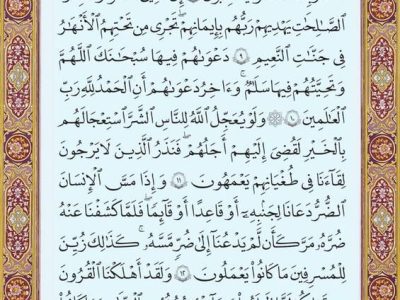 ٱلصَّٰلِحَٰتِ يَهْدِيهِمْ رَبُّهُم بِإِيمَٰنِهِمْ ۖ تَجْرِى مِن تَحْتِهِمُ ٱلْأَنْهَٰرُ
فِى جَنَّٰتِ ٱلنَّعِيمِ ٩ دَعْوَىٰهُمْ فِيهَا سُبْحَٰنَكَ ٱللَّهُمَّ
وَتَحِيَّتُهُمْ فِيهَا سَلَٰمٌ ۚ وَءَاخِرُ دَعْوَىٰهُمْ أَنِ ٱلْحَمْدُ لِلَّهِ رَبِّ
ٱلْعَٰلَمِينَ ١٠ ۞ وَلَوْ يُعَجِّلُ ٱللَّهُ لِلنَّاسِ ٱلشَّرَّ ٱسْتِعْجَالَهُم
بِٱلْخَيْرِ لَقُضِىَ إِلَيْهِمْ أَجَلُهُمْ ۖ فَنَذَرُ ٱلَّذِينَ لَا يَرْجُونَ
لِقَآءَنَا فِى طُغْيَٰنِهِمْ يَعْمَهُونَ ١١ وَإِذَا مَسَّ ٱلْإِنسَٰنَ
ٱلضُّرُّ دَعَانَا لِجَنۢبِهِۦٓ أَوْ قَاعِدًا أَوْ قَآئِمًا فَلَمَّا كَشَفْنَا عَنْهُ
ضُرَّهُۥ مَرَّ كَأَن لَّمْ يَدْعُنَآ إِلَىٰ ضُرٍّ مَّسَّهُۥ ۚ كَذَٰلِكَ زُيِّنَ
لِلْمُسْرِفِينَ مَا كَانُوا۟ يَعْمَلُونَ ١٢ وَلَقَدْ أَهْلَكْنَا ٱلْقُرُونَ